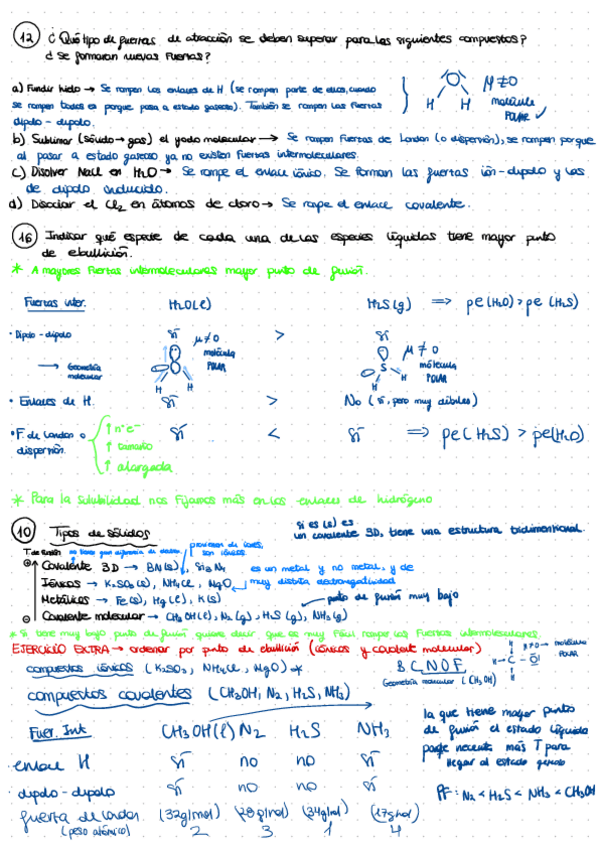 12 ¿Qué tipo de fuerzas de atracción se deben superar para los siguientes compuestos?
¿Se formaran nuevas Fuerzas?
a) Fundir hielo → Se rompen los enlaces de H (se rompen parte de ellos, cuando
se rompen todos es porque pasa a estado gaseoso). También se rompen las Fuerzas
dipolo - dipolo.
O H H μ≠0
molécula
POLAR ✓
b) Sublimar (sólido → gas) el yodo molecular → Se rompen Fuerzas de London (o dispersión), se rompen porque
al pasar a estado gaseoso ya no existen Fuerzas intermoleculares.
c) Disolver NaCl en H₂O → Se rompe el enlace iónico. Se forman las fuerzas ión-dipolo y las
de dipolo inducido.
d) Disociar el Cl₂ en átomos de cloro → Se rompe el enlace covalente.
16 Indicar qué especie de cada una de las especies líquidas tiene mayor punto
de ebullición.
* A mayores Fuerzas intermoleculares mayor punto de fusión.
Fuerzas inter. H₂O(l) H₂S(g) ⇒ pe(H₂O) > pe(H₂S)
· Dipolo - dipolo Sí > Sí
→ Geometría molecular
μ≠0 molécula POLAR H H
μ≠0 molécula POLAR S H H
· Enlaces de H. Sí > No (Sí, pero muy débiles)
· F. de London o dispersión
↑ nº e⁻
↑ tamaño
↑ alargada
Sí < Sí ⇒ pe(H₂S) > pe(H₂O)
* Para la solubilidad nos Fijamos más en los enlaces de hidrógeno
10 Tipos de sólidos
si es (s) es
un covalente 3D, tiene una estructura tridimensional.
T. de fusión no tienen gran diferencia de electro. provienen de iones, son iónicos.
⊕ Covalente 3D → BN(s), Si₃N₄ es un metal y no metal, y de
Iónicos → K₂SO₃(s), NH₄Cl, MgO muy distinta electronegatividad
Metálicos → Fe(s), Hg(l), K(s) punto de fusión muy bajo
⊖ Covalente molecular → CH₃OH(l), N₂(g), H₂S(g), NH₃(g)
* Si tiene muy bajo punto de fusión quiere decir que es muy Fácil romper las Fuerzas intermoleculares.
EJERCICIO EXTRA → ordenar por punto de ebullición (iónicos y covalente molecular)
compuestos iónicos (K₂SO₃, NH₄Cl, MgO) *
B C N O F
Geometría molecular (CH₃OH)
H H - C - O H μ≠0 → molécula POLAR
compuestos covalentes (CH₃OH, N₂, H₂S, NH₃)
Fuer. Int CH₃OH(l) N₂ H₂S NH₃
· enlace H Sí no no Sí
· dipolo - dipolo Sí no no Sí
fuerza de London (32g/mol) (28g/mol) (34g/mol) (17g/mol)
(peso atómico) 2 3 1 4
la que tiene mayor punto
de fusión el estado líquido
pq necesita más T para
llegar al estado gaseoso
PF: N₂ < H₂S < NH₃ < CH₃OH